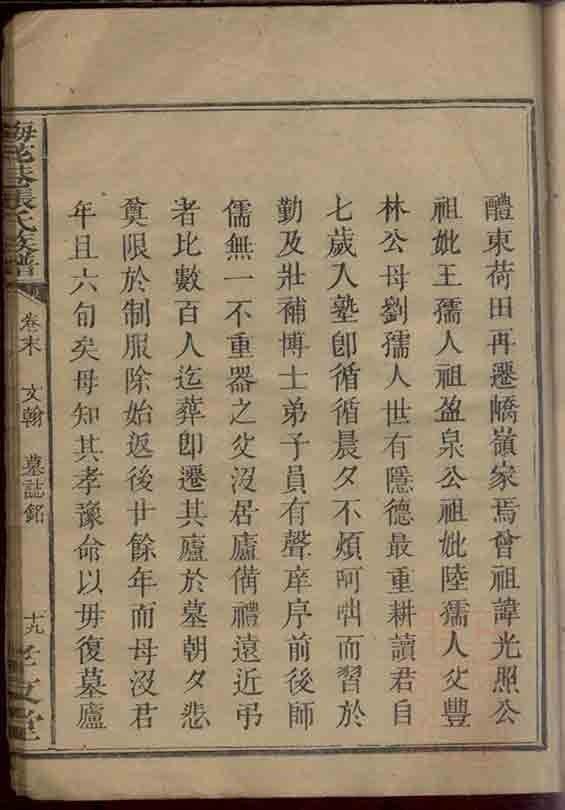 醴東荷田再遷嶠嶺家焉曾祖諱光照公
祖妣王孺人祖盈泉公祖妣陸孺人父豐
林公母劉孺人世有隱德最重耕讀君自
七歲入塾卽循循晨夕不煩呵咄而習於
勤及壯補博士弟子員有聲庠序前後師
儒無一不重器之父沒居廬備禮遠近弔
者比數百人迄葬卽遷其廬於墓朝夕悲
奠限於制服除始返後廿餘年而母沒君
年且六旬矣母知其孝豫命以毋復墓廬
張氏族譜
卷末 文翰 墓誌銘
十九